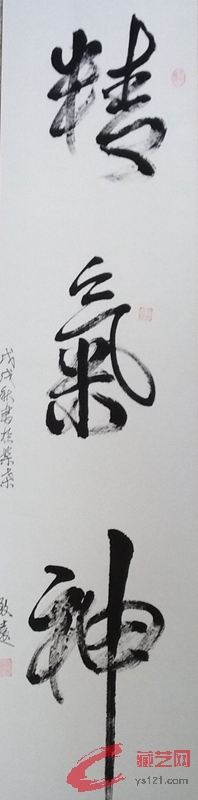 精氣神
戊戌秋書於
致遠
藏艺网
ys121.com